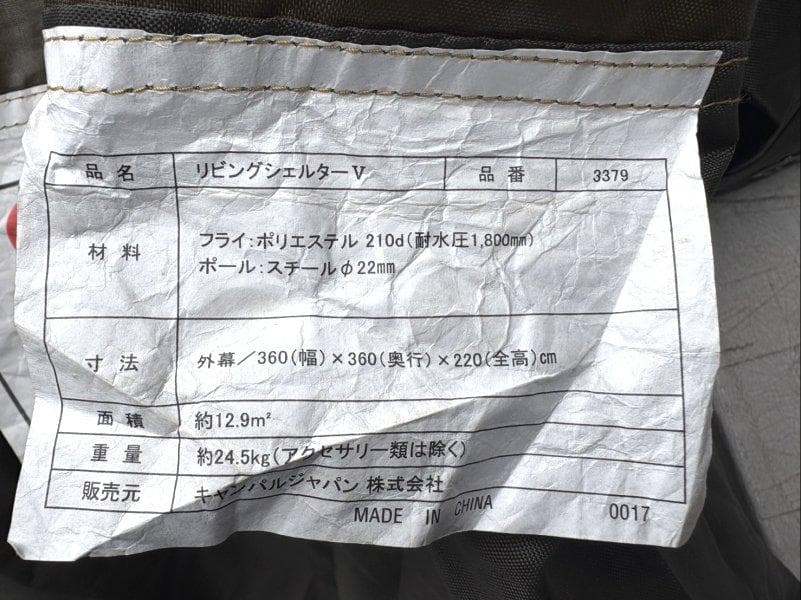 品名 リビングシェルターV 品番 3379
材料 フライ：ポリエステル 210d（耐水圧1,800mm）
ポール：スチールφ22mm
寸法 外幕／360（幅）×360（奥行）×220（全高）cm
面積 約12.9m²
重量 約24.5kg（アクセサリー類は除く）
販売元 キャンパルジャパン 株式会社
MADE IN CHINA 0017